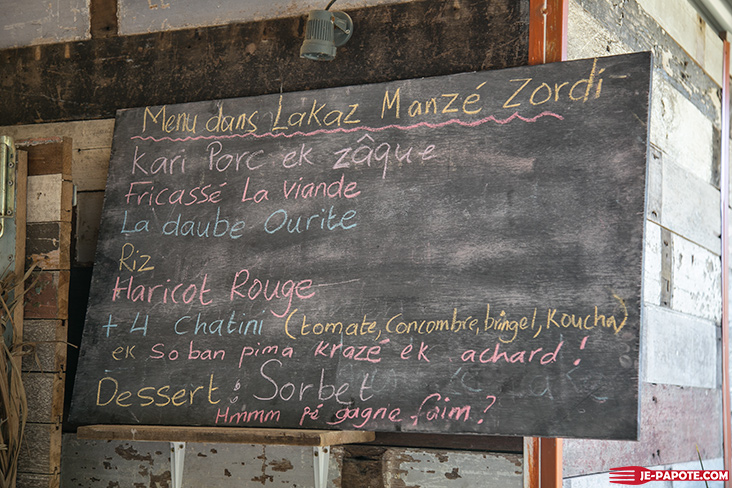 Menu dans Lakaz Manzé Zordi
Kari Porc ek zâque
Fricassé La viande
La daube Ourite
Riz
Haricot Rouge
+ 4 Chatini (tomate, Concombre, bringel, Koucha)
ek so ban pima krazé ek achard!
Dessert: Sorbet
Hmmm pé gagne faim?
JE-PAPOTE.COM